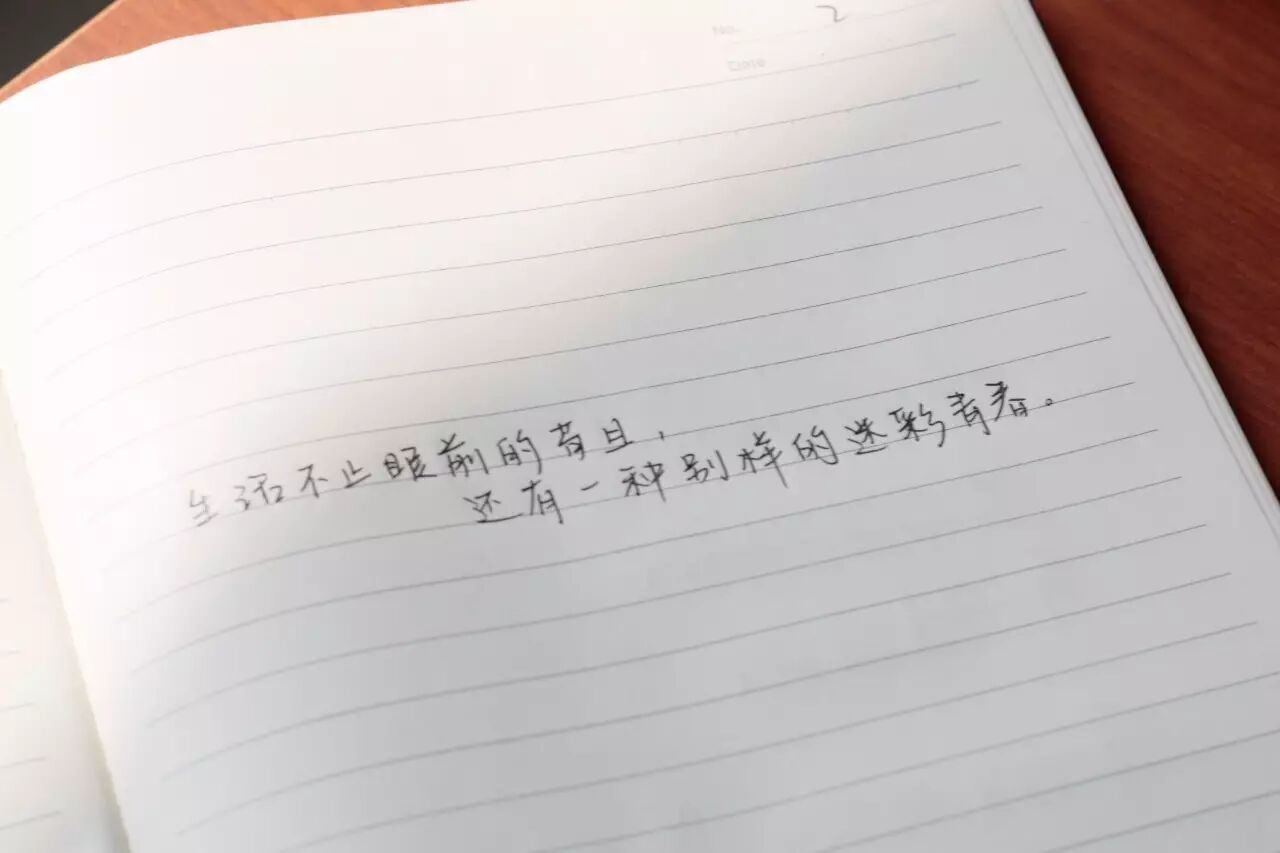 No. 2
Date
生活不止眼前的苟且，
还有一种别样的迷彩青春。